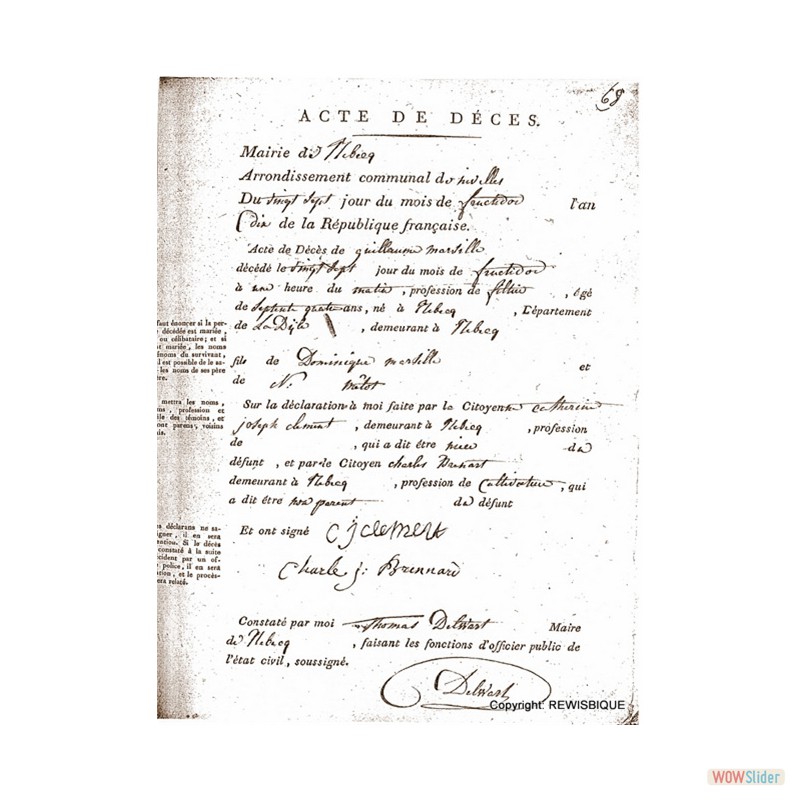 68
ACTE DE DÉCES.
Mairie de Rebecq
Arrondissement communal de nivelles
Du vingt sept jour du mois de fructidor l'an
Dix de la République française.
Acte de Décès de guillaume marsille
décédé le vingt sept jour du mois de fructidor
à une heure du matin, profession de , âgé
de septente quatre ans, né à Rebecq , Département
de La Dyle , demeurant à Rebecq
fils de Dominique marsille et
de N.
Sur la déclaration à moi faite par le Citoyenne catherine
joseph clement , demeurant à Rebecq , profession
de , qui a dit être niece du
défunt, et par le Citoyen charles
demeurant à Rebecq , profession de Cultivateur, qui
a dit être non parent du défunt
Et ont signé cjclement
Charle j: Brennard
Constaté par moi Thomas Delwart Maire
de Rebecq , faisant les fonctions d'officier public de
l'état civil, soussigné.
Delwart
faut énoncer si le per-
décédée est mariée,
ou célibataire; et si
mariée, les noms
énoms du survivant,
il est possible de le sa-
les noms de ses père
ère.
mettra les noms,
ms, profession et
ile des témoins, et
ont parens, voisins
is.
s déclarans ne sa-
igner, il en sera
ention. Si le décès
constaté à la suite
cident par un of-
police, il en sera
ation, et le procès-
era relaté.
Copyright: REWISBIQUE
WOWSlider